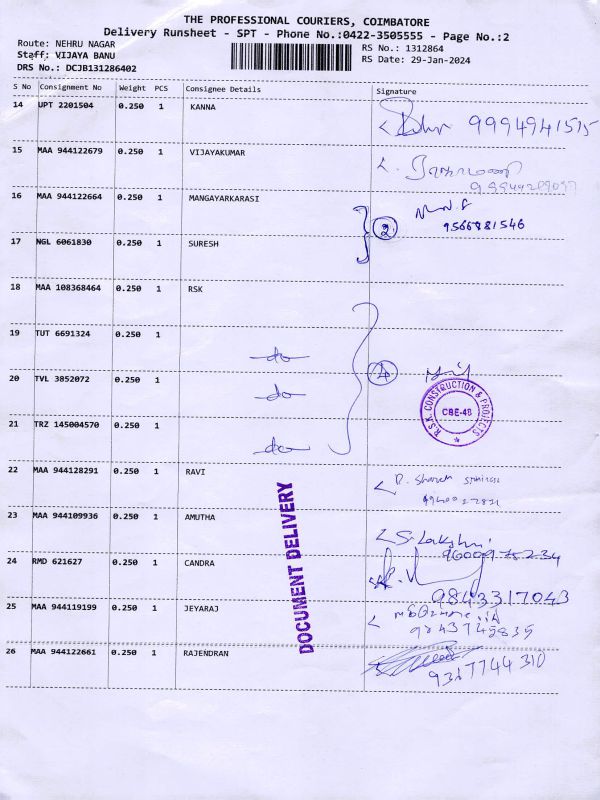 THE PROFESSIONAL COURIERS, COIMBATORE
Delivery Runsheet - SPT - Phone No.:0422-3505555 - Page No.:2
Route: NEHRU NAGAR
Staff: VIJAYA BANU
DRS No.: DCJB131286402
RS No.: 1312864
RS Date: 29-Jan-2024
S No Consignment No Weight PCS Consignee Details Signature
14 UPT 2201504 0.250 1 KANNA 9994941515
15 MAA 944122679 0.250 1 VIJAYAKUMAR
16 MAA 944122664 0.250 1 MANGAYARKARASI
2 9566881546
17 NGL 6061830 0.250 1 SURESH
18 MAA 108368464 0.250 1 RSK
19 TUT 6691324 0.250 1
do
20 TVL 3852072 0.250 1 4
do
R.S.K. CONSTRUCTION & PROJECTS
CBE-48
21 TRZ 145004570 0.250 1
do
22 MAA 944128291 0.250 1 RAVI
23 MAA 944109936 0.250 1 AMUTHA
S. Lakshmi
9600975234
24 RMD 621627 0.250 1 CANDRA
9843317043
25 MAA 944119199 0.250 1 JEYARAJ
26 MAA 944122661 0.250 1 RAJENDRAN
9367744310
DOCUMENT DELIVERY